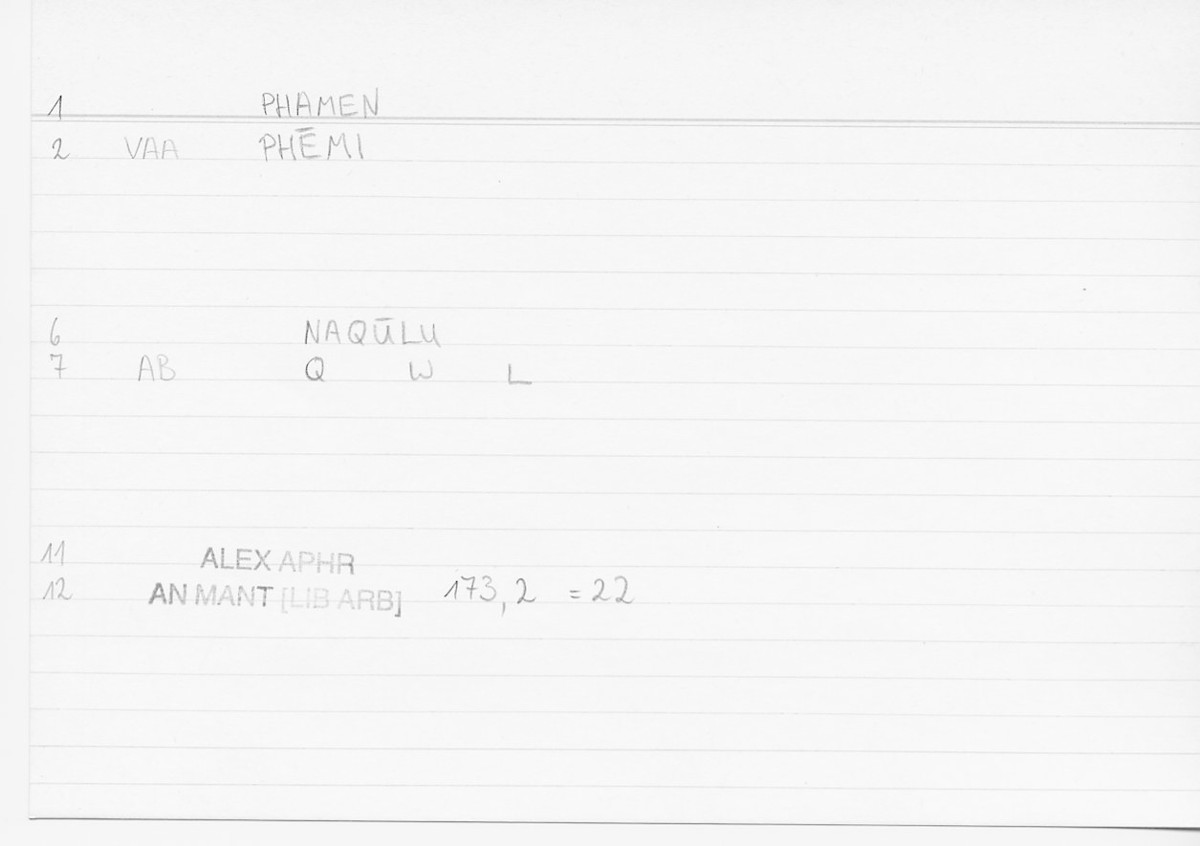 1 PHAMEN
2 VAA PHĒMI
6 NAQŪLU
7 AB Q W L
11 ALEX APHR
12 AN MANT [LIB ARB] 173,2 =22